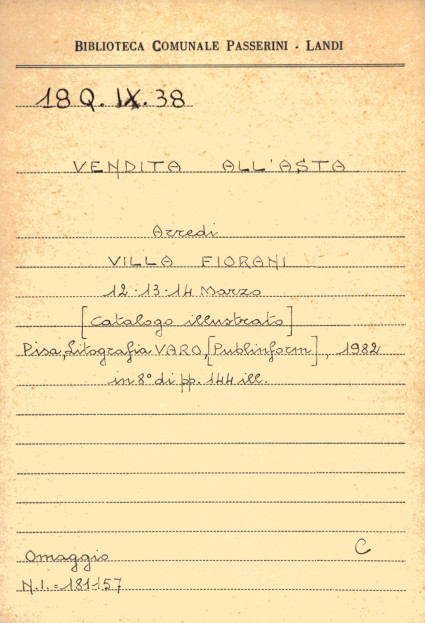 BIBLIOTECA COMUNALE PASSERINI - LANDI
18 Q. IX. 38
VENDITA ALL'ASTA
Arredi
VILLA FIORANI
12-13-14 Marzo
[Catalogo illustrato]
Pisa, Litografia VARO, [Publinform], 1982
in 8° di pp. 144 ill.
Omaggio C
N.I. = 181157